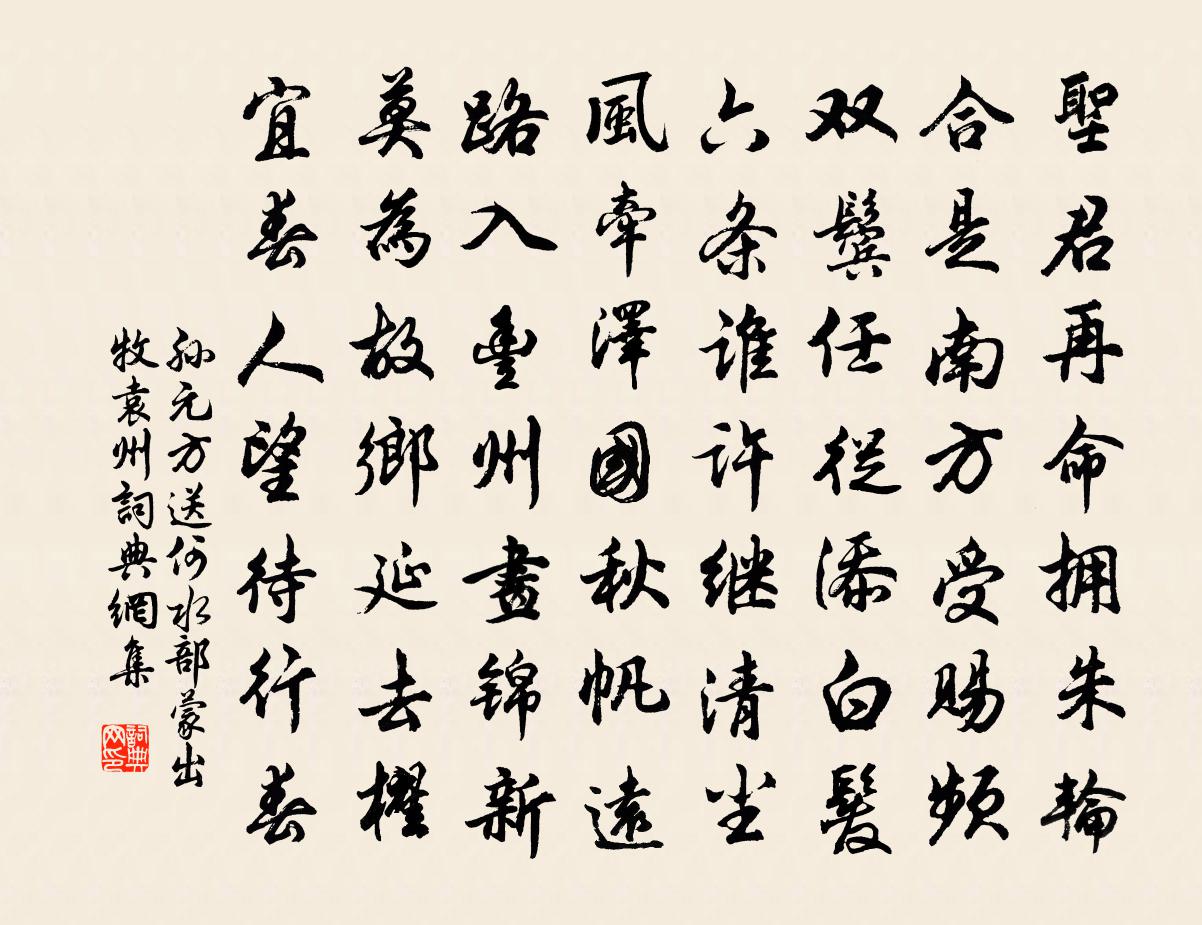 聖君再命拥朱輪
合是南方受賜频
双鬓任從添白髮
六条谁许继清尘
風牽澤國秋帆遠
路入豊州晝锦新
莫為故鄉延去櫂
宜春人望待行春
孙元方送何水部蒙出
牧袁州詞典網集
詞典网印